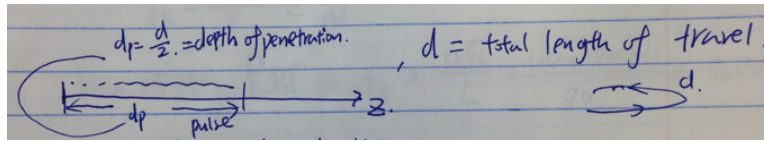 dp = d/2. = depth of penetration.
, d = total length of travel.
dp pulse z.
d.